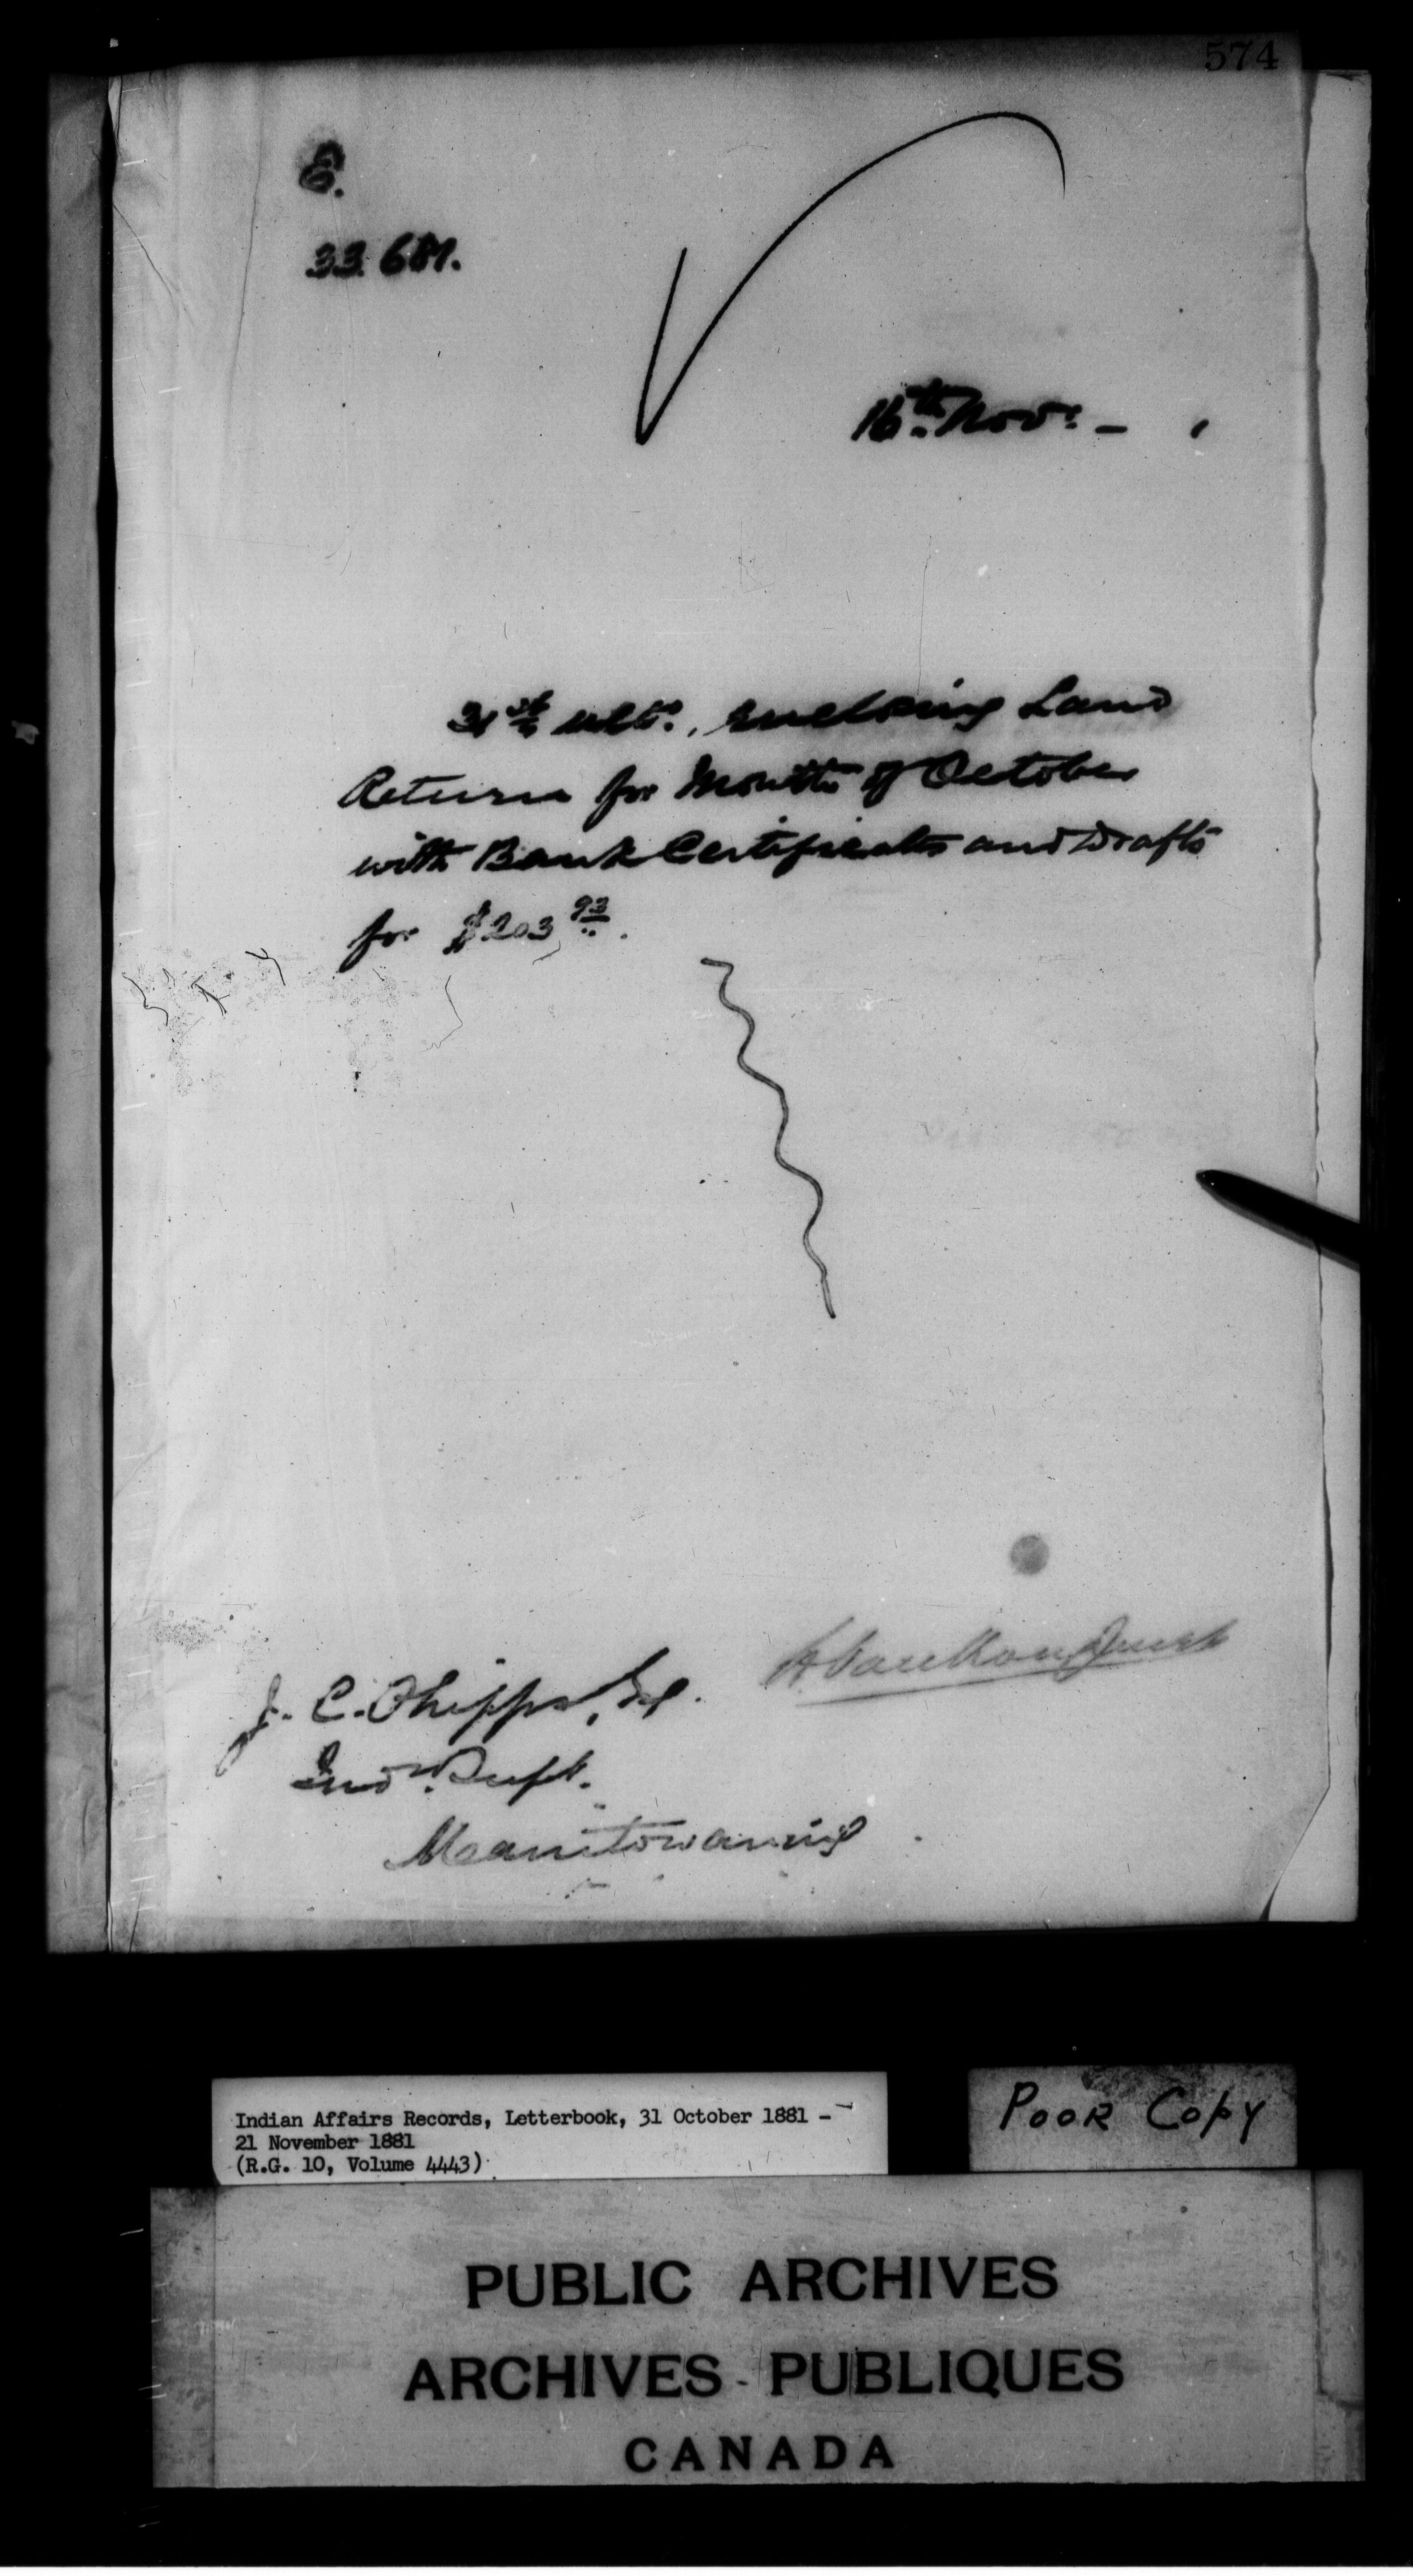 574
E.
33.681.
16th Novr. -
31st ulto., enclosing Land
Return for Month of October
with Bank Certificates and Drafts
for $203 93.
H. VanKoughnet
J. C. Phipps, Esq.
Indn. Supt.
Manitowaning
Indian Affairs Records, Letterbook, 31 October 1881 -
21 November 1881
(R.G. 10, Volume 4443)
POOR COPY
PUBLIC ARCHIVES
ARCHIVES PUBLIQUES
CANADA